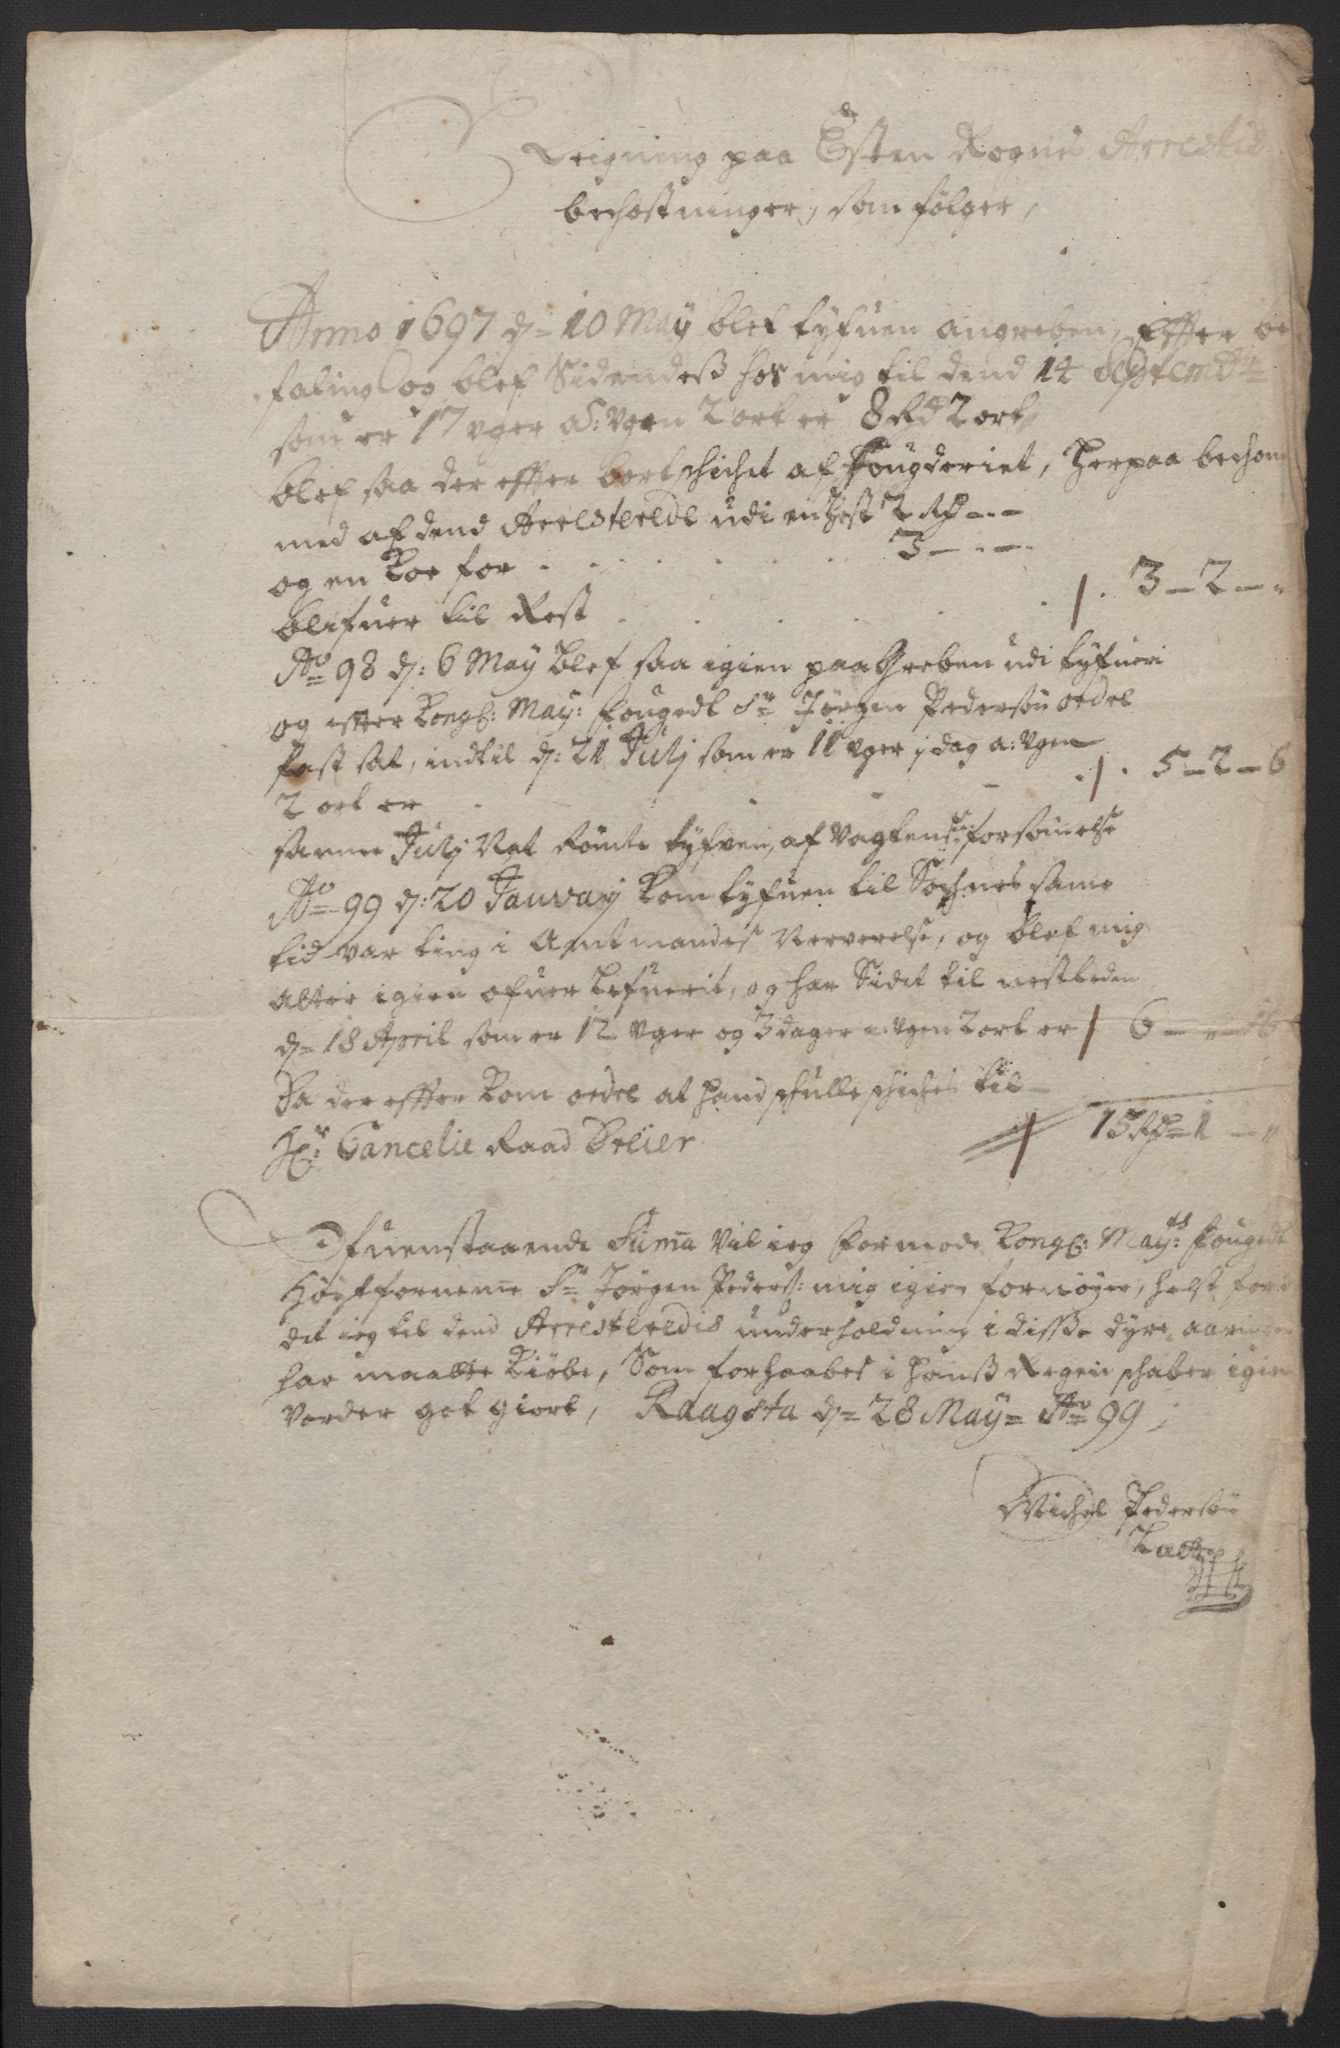 Reigning paa Esten Rognes Arrestid
bechostninger, som følger,
Anno 1697 d= 10 May blef tyfuen angreben, Effter be
faling og blef Sidendeß hos mig til dend 14 Septembr
som er 17 uger a: ugen 2 ort er 8 Rd 2 ort
blef saa der effter bortschichit af Fougderiet, Herpaa bechom
med af dend Arresterede udi en Hest 2 Rd - - -
og en Koe for . . . . . . 3 - - -
blifuer til Rest . . . . . 3 - 2 - "
Ao 98 d: 6 May blef saa igien paaGreben udi tyfueri
og efter Kongl: May: fougedt Sr Jørgen Pedersøn ordel
fast sat, indtil d: 21 Julj som er 11 uger j dag a: ugen
2 ort er . . . . . 5 - 2 - 6
samme Julj Nat Römte tyfven, af Vagtens forsømelse
Ao 99 d: 20 Januarj Kom tyfuen til Sochnes same
tid var ting i Amtmandes Nerverelse, og blef mig
atter igien ofuer Lefuerit, og har Sidet til nestleden
d= 18 April som er 12 uger og 3 dager a: ugen 2 ort er 6 - " -
Da der effter kom ordel at hand schulle schiches til
Hr: Cancelie Raad Dreier 15 Rd - 1 - "
Ofuenstaaende Suma Vil ieg formode Kongl: Mayts: fougedt
Høyfornemme Sr Jørgen Peders: mig igien fornøyer, helst for
det ieg til dend Arresteredis underholdning i disse dyre aaringer
har maatte Kiöbe, Som forhaabes i hanß Regenschaber igien
Vorder got giort, Raagsta d= 28 May= Ao 99 ;
Michel Pedersøn